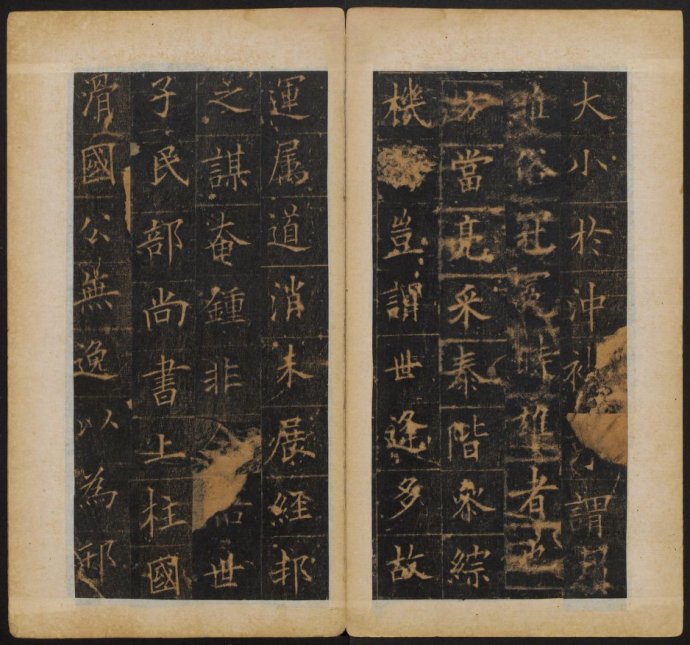 大小於沖謂
俗冠冕時雄者也
方當亮采泰階參綜
機豈謂世逢多故
運属道消未展經邦
之謀奄鍾非世
子民部尚書上柱國
滑國公無逸以為邢